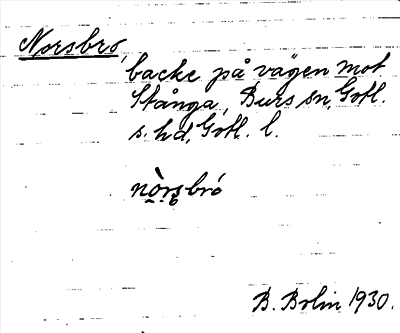 Norsbro,
backe på vägen mot
Stånga, Burs sn, Gotl.
s. hd, Gotl. l.
nò̱rs̥bró
B. Bolin 1930.